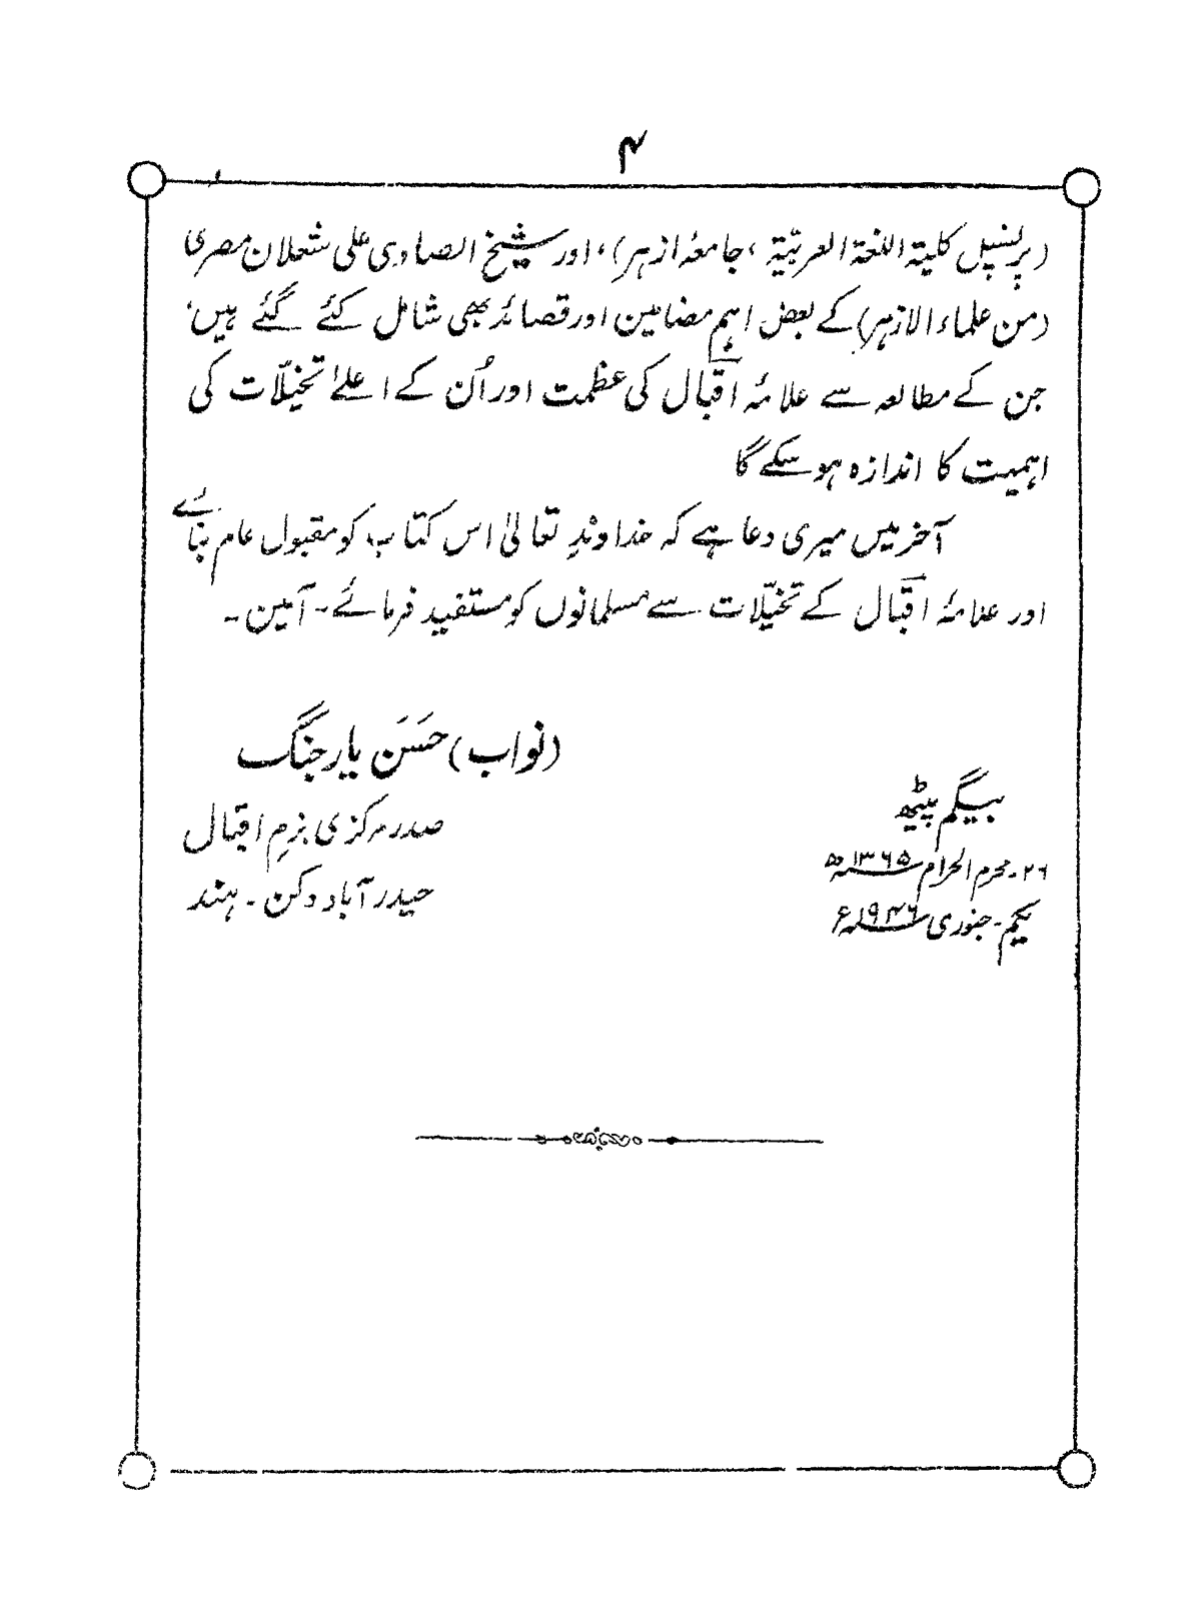 ۴
(پرنسپل کلیۃ اللغۃ العربیّۃ، جامعۂ ازہر)، اور شیخ الصاوی علی شعلان مصری
(من علماء الازہر) کے بعض اہم مضامین اور قصائد بھی شامل کئے گئے ہیں،
جن کے مطالعہ سے علامۂ اقبال کی عظمت اور اُن کے اعلیٰ تخیّلات کی
اہمیت کا اندازہ ہوسکے گا
آخر میں میری دعا ہے کہ خداوندِ تعالیٰ اس کتاب کو مقبول عام بنائے
اور علامۂ اقبال کے تخیّلات سے مسلمانوں کو مستفید فرمائے۔ آمین۔
(نواب) حَسَن یار جنگ
صدر مرکزی بزمِ اقبال
حیدرآباد دکن۔ ہند
بیگم پیٹھ
۲۶۔ محرم الحرام ۱۳۶۵ھ
یکم۔ جنوری ۱۹۴۶ء